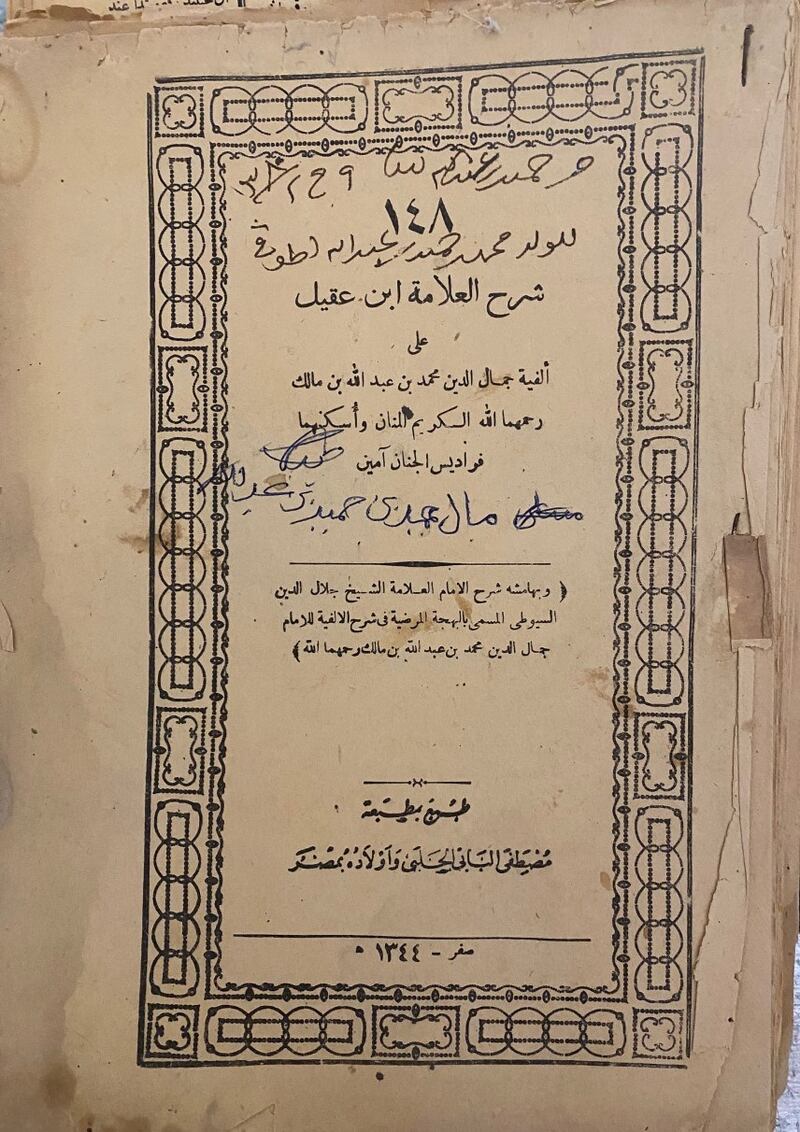 ١٤٨
للولد محمد حميد عبدالله
شرح العلامة ابن عقيل
على
ألفية جمال الدين محمد بن عبد الله بن مالك
رحمهما الله الكريم المنان وأسكنهما
فراديس الجنان آمين
مال محمد بن حميد بن عبدالله
﴿ وبهامشه شرح الامام العلامة الشيخ جلال الدين
السيوطى المسمى بالبهجة المرضية فى شرح الالفية للامام
جمال الدين محمد بن عبد الله بن مالك رحمهما الله ﴾
طبع بمطبعة
مصطفى البابى الحلبى وأولاده بمصر
صفر - ١٣٤٤ ه